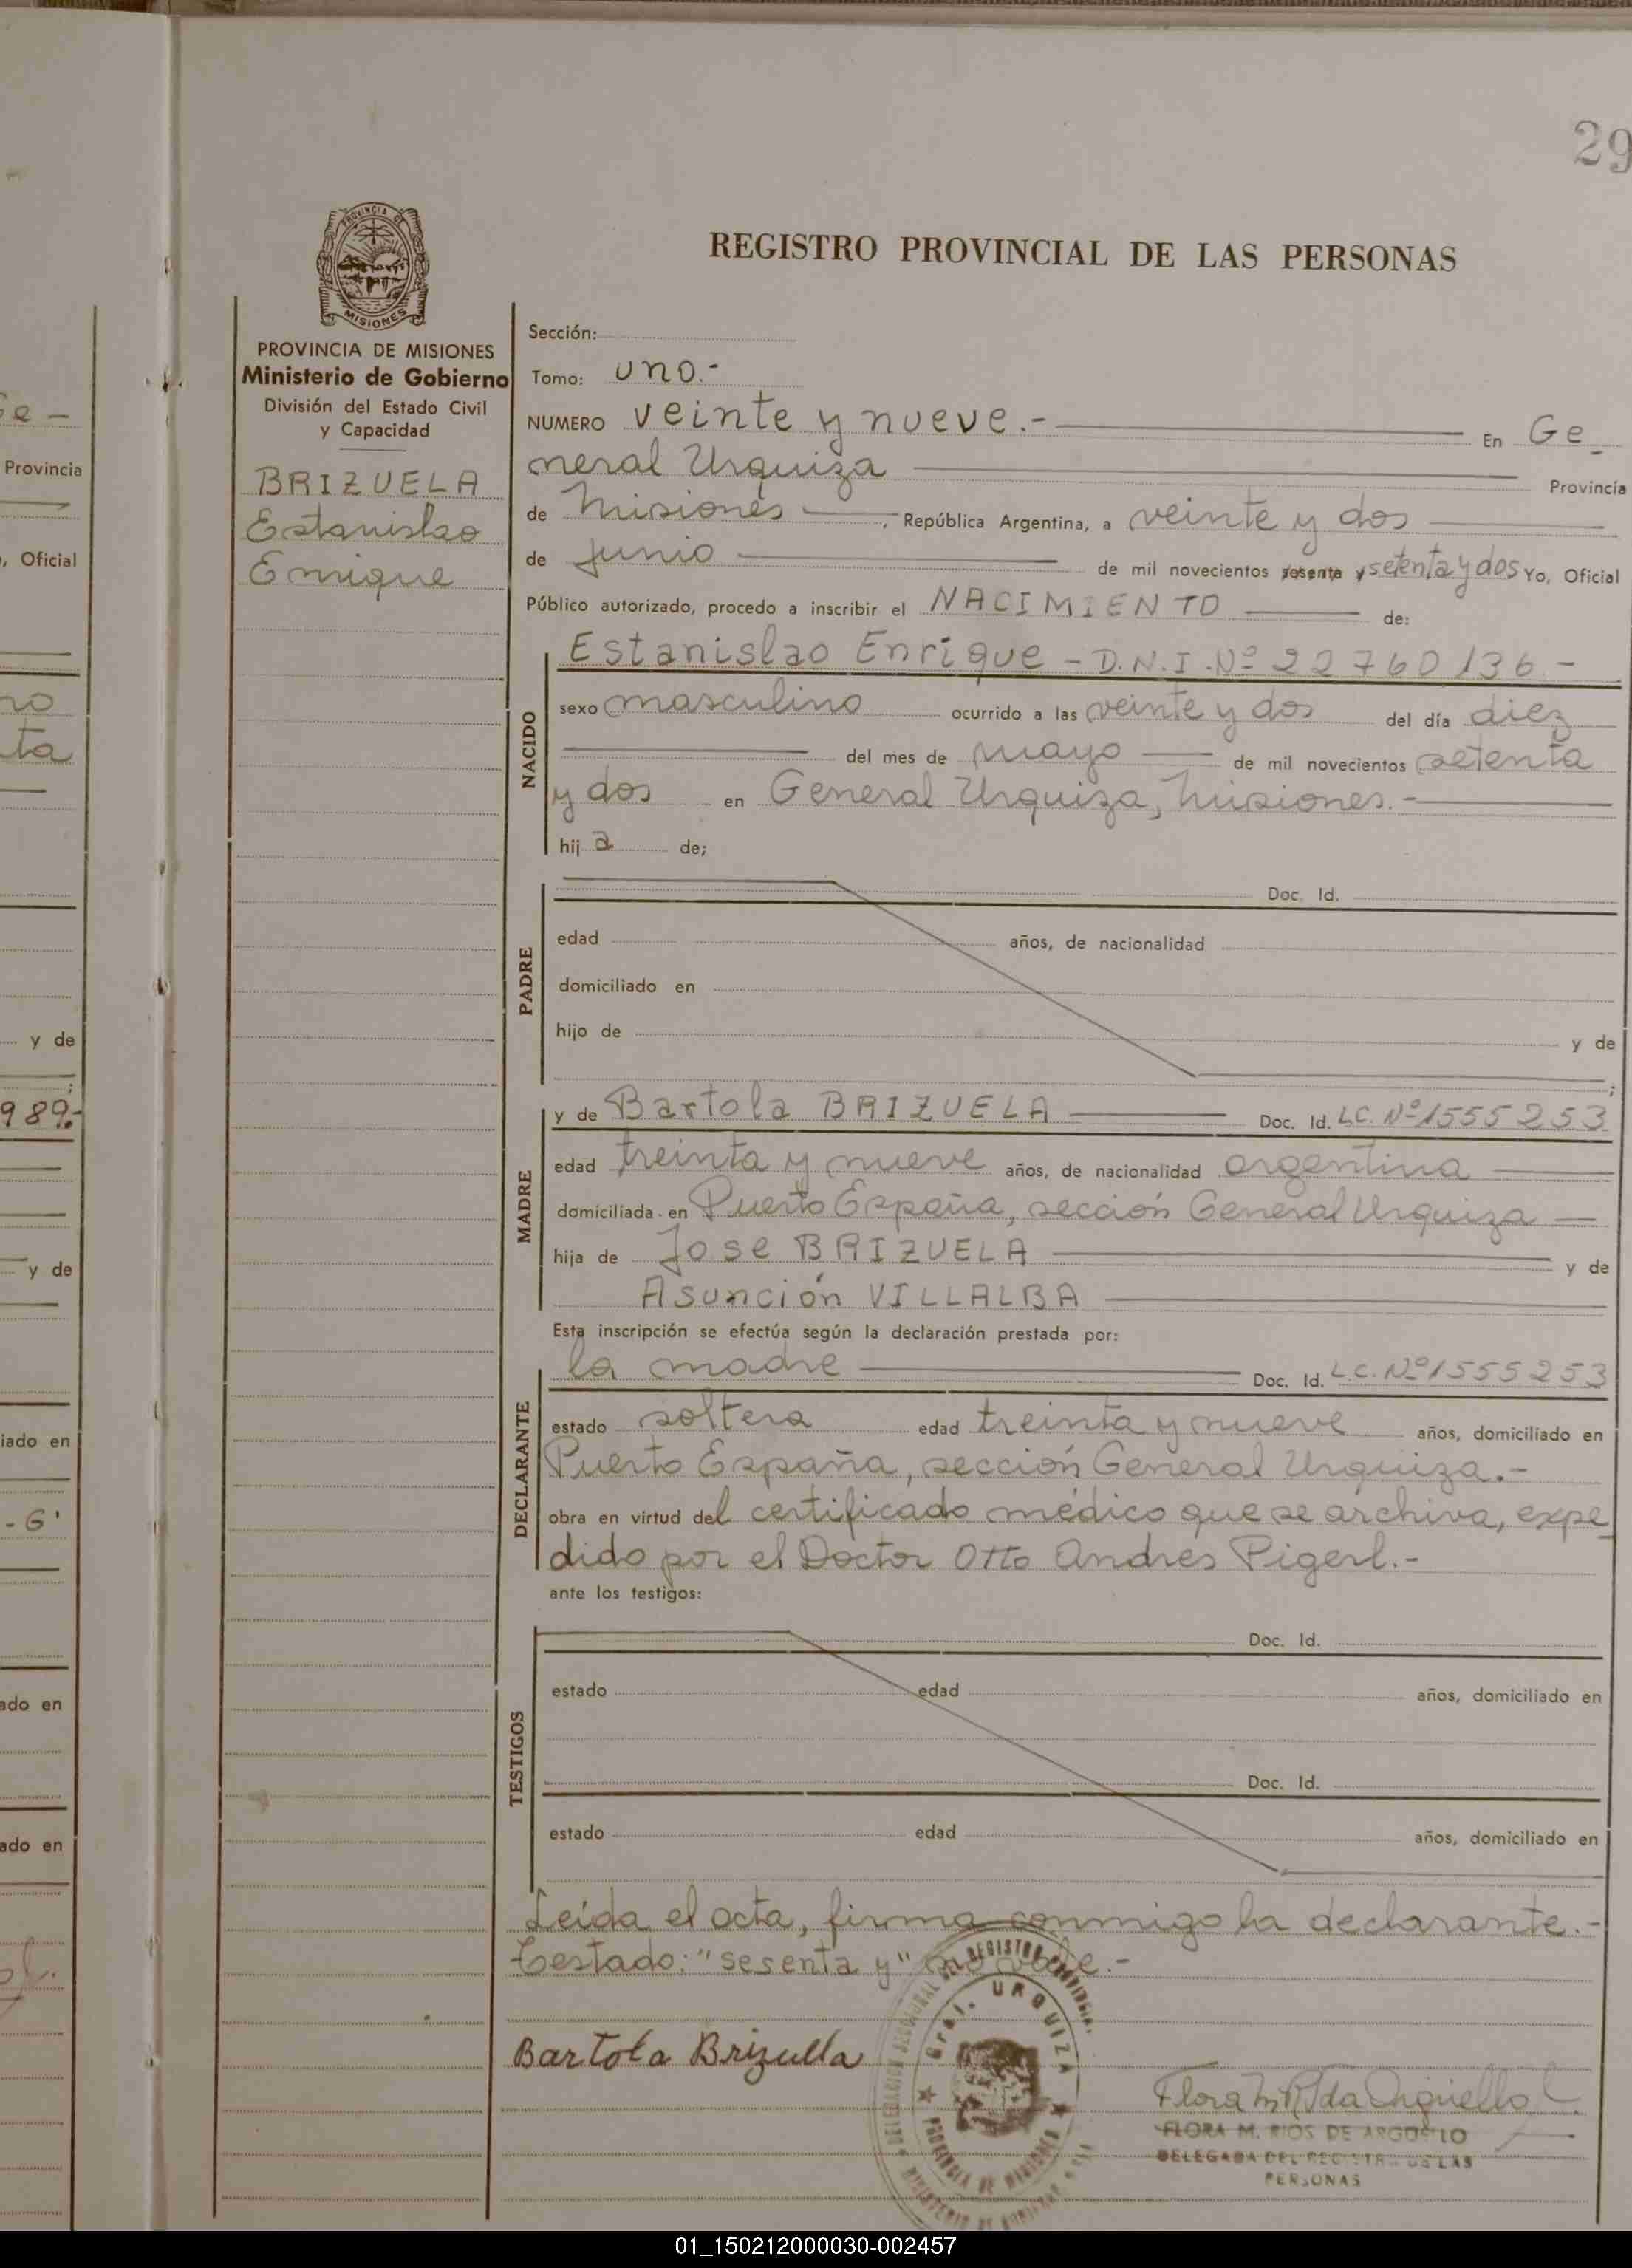 29
REGISTRO PROVINCIAL DE LAS PERSONAS
PROVINCIA DE
MISIONES
PROVINCIA DE MISIONES
Ministerio de Gobierno
División del Estado Civil
y Capacidad
BRIZUELA
Estanislao
Enrique
Sección:
Tomo: uno.-
NUMERO veinte y nueve.- En Ge_
neral Urquiza Provincia
de Misiones, República Argentina, a veinte y dos
de junio de mil novecientos sesenta y setenta y dos Yo, Oficial
Público autorizado, procedo a inscribir el NACIMIENTO de:
NACIDO
Estanislao Enrique - D.N.I. Nº 22760136.-
sexo masculino ocurrido a las veinte y dos del día diez
del mes de mayo de mil novecientos setenta
y dos en General Urquiza, Misiones.-
hij a de;
PADRE
Doc. Id.
edad años, de nacionalidad
domiciliado en
hijo de y de
;
MADRE
y de Bartola BRIZUELA Doc. Id. LC. Nº 1555253
edad treinta y nueve años, de nacionalidad argentina
domiciliada en Puerto España, sección General Urquiza
hija de Jose BRIZUELA y de
Asunción VILLALBA
Esta inscripción se efectúa según la declaración prestada por:
DECLARANTE
la madre Doc. Id. L.C. Nº 1555253
estado soltera edad treinta y nueve años, domiciliado en
Puerto España, sección General Urquiza.-
obra en virtud del certificado médico que se archiva, expe_
dido por el Doctor Otto Andres Pigerl.-
ante los testigos:
TESTIGOS
Doc. Id.
estado edad años, domiciliado en
Doc. Id.
estado edad años, domiciliado en
Leída el acta, firma conmigo la declarante.-
Testado: "sesenta y" no vale.-
Bartola Brizuella
Gral. URQUIZA
PROVINCIA DE MISIONES
FLORA M. RIOS DE ARGÜELLO
DELEGADA DEL REGISTRO DE LAS
PERSONAS
Provincia
, Oficial
no
ta
y de
989.-
y de
iado en
ado en
ado en
01_150212000030-002457